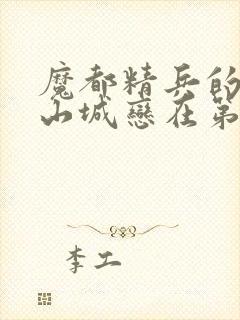 魔都精兵的
山城戀在第
李工